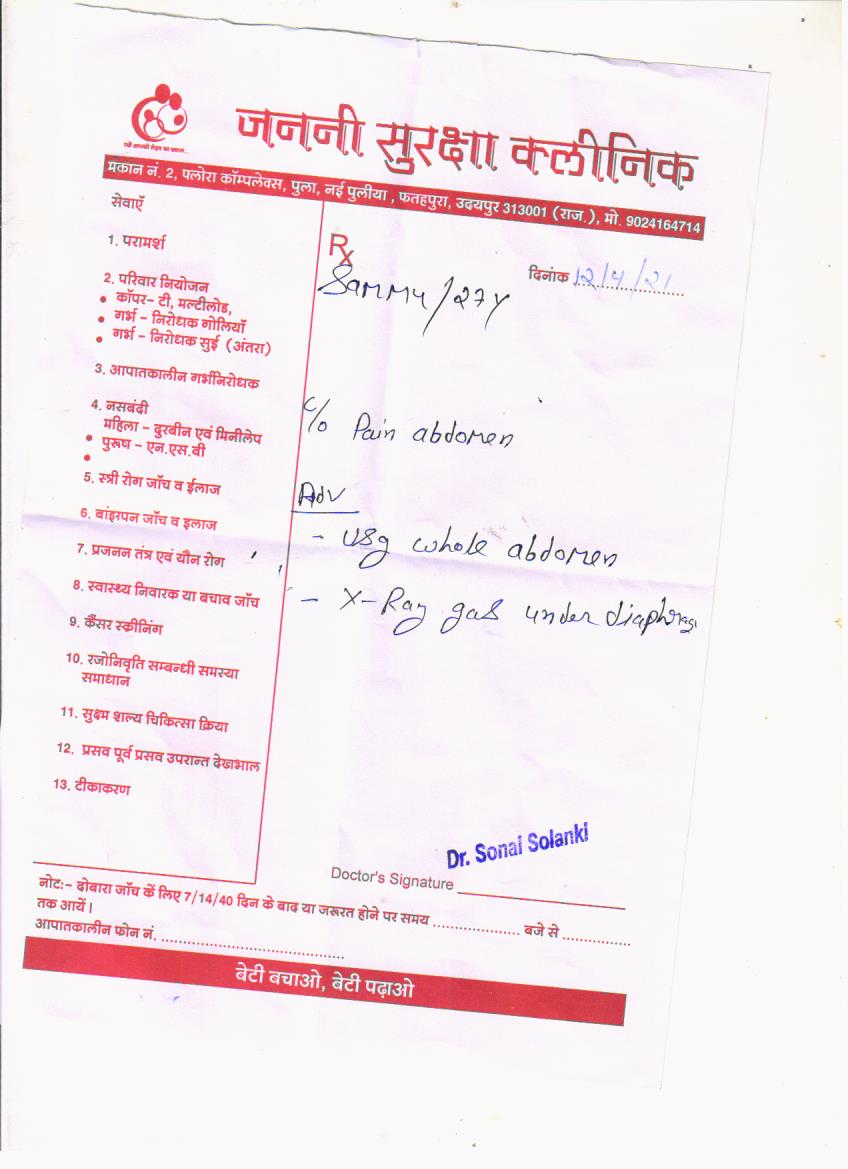 जननी सुरक्षा क्लीनिक
मकान नं. 2, फ्लोरा कॉम्पलेक्स, पुला, नई पुलीया , फतहपुरा, उदयपुर 313001 (राज.), मो. 9024164714
सेवाएँ
1. परामर्श
2. परिवार नियोजन
• कॉपर– टी, मल्टीलोड,
• गर्भ – निरोधक गोलियाँ
• गर्भ – निरोधक सुई (अंतरा)
3. आपातकालीन गर्भनिरोधक
4. नसबंदी
महिला – दुरबीन एवं मिनीलेप
• पुरूष – एन.एस.बी
•
5. स्त्री रोग जाँच व ईलाज
6. बांझपन जाँच व इलाज
7. प्रजनन तंत्र एवं यौन रोग
8. स्वास्थ्य निवारक या बचाव जाँच
9. कैंसर स्क्रीनिंग
10. रजोनिवृति सम्बन्धी समस्या
समाधान
11. सुक्ष्म शल्य चिकित्सा क्रिया
12. प्रसव पूर्व प्रसव उपरान्त देखभाल
13. टीकाकरण
Rx
दिनांक 12/4/21
Sammy/27y
c/o Pain abdomen
Adv
- USg whole abdomen
- X-Ray gas under diaphrag
Dr. Sonal Solanki
Doctor's Signature
नोट:– दोबारा जाँच कें लिए 7/14/40 दिन के बाद या जरूरत होने पर समय .................... बजे से ................
तक आयें।
आपातकालीन फोन नं. ...........................................
बेटी बचाओ, बेटी पढ़ाओ